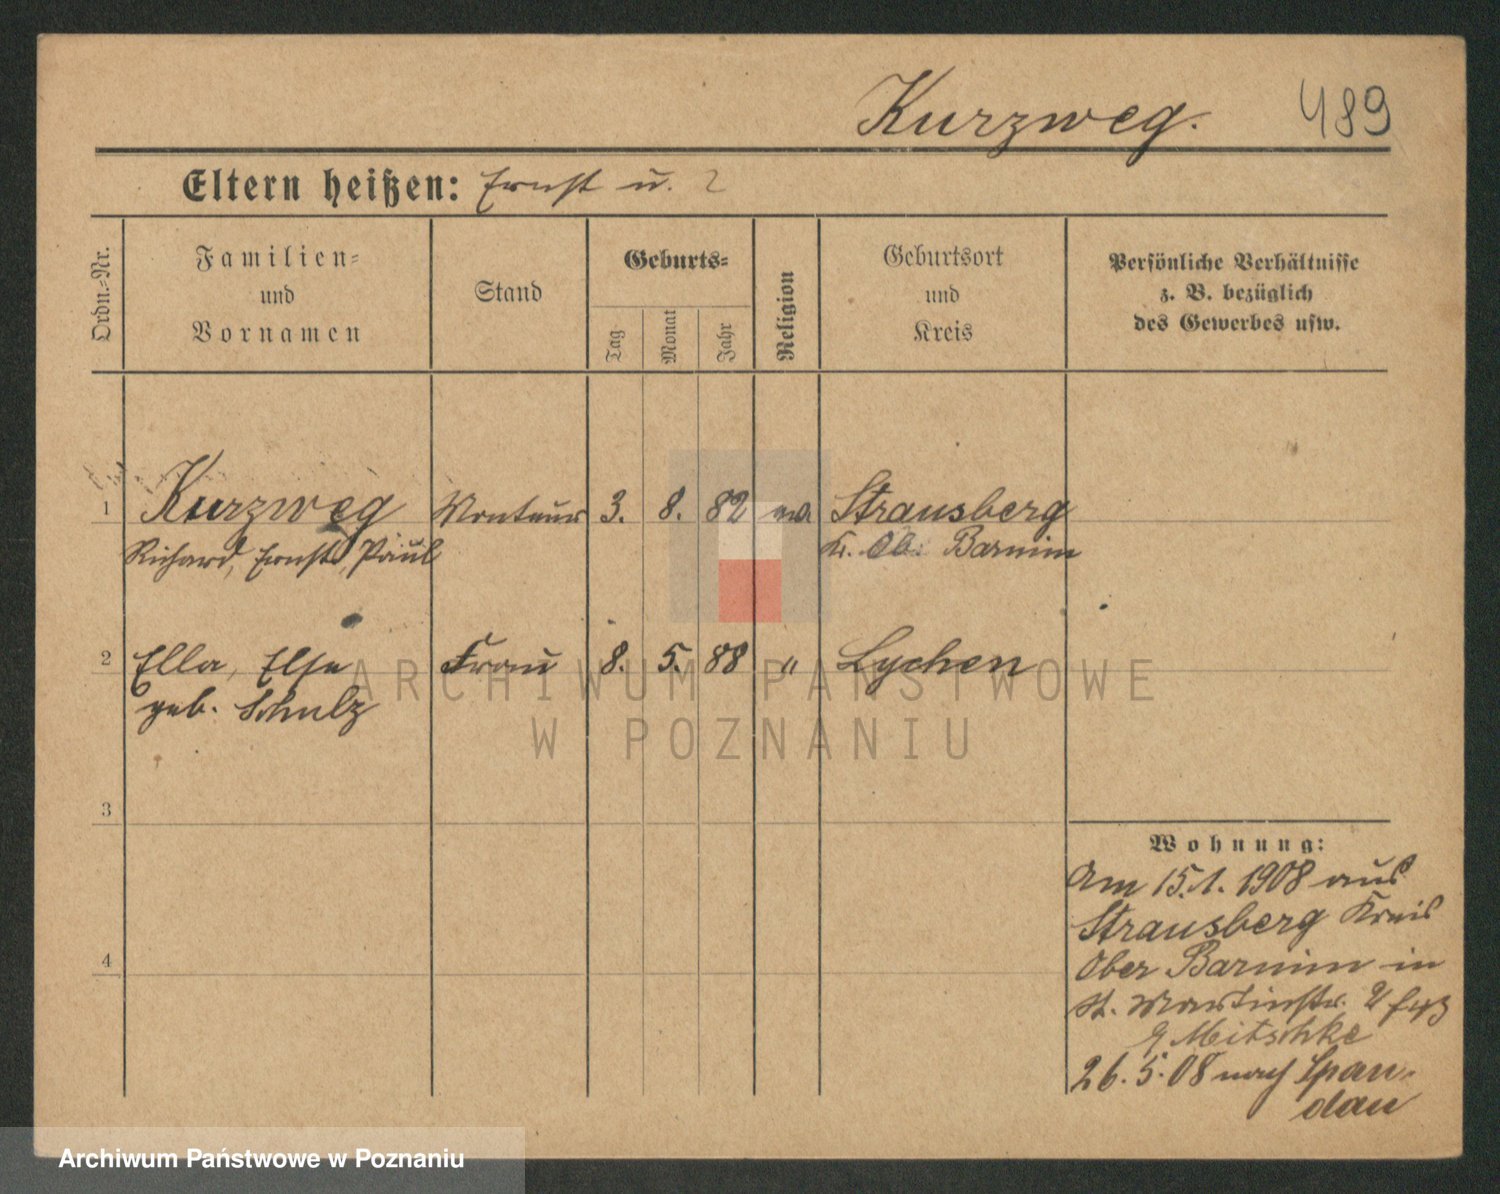 Kurzweg. 489
Eltern heißen: Ernst u. ?
Ordn.-Nr.
Familien-
und
Vornamen
Stand
Geburts-
Tag
Monat
Jahr
Religion
Geburtsort
und
Kreis
Persönliche Verhältnisse
z. B. bezüglich
des Gewerbes usw.
1 Kurzweg Monteur 3. 8. 82 ev. Strausberg
Richard, Ernst, Paul Kr. Ob. Barnim
2 Ella, Else Frau 8. 5. 88 " Lychen
geb. Schulz
3
4
Wohnung:
Am 15.1. 1908 aus
Strausberg Kreis
Ober Barnim in
St. Martinstr.
Mitschke
26. 5. 08 nach Span-
dau
ARCHIWUM PAŃSTWOWE
W POZNANIU
Archiwum Państwowe w Poznaniu